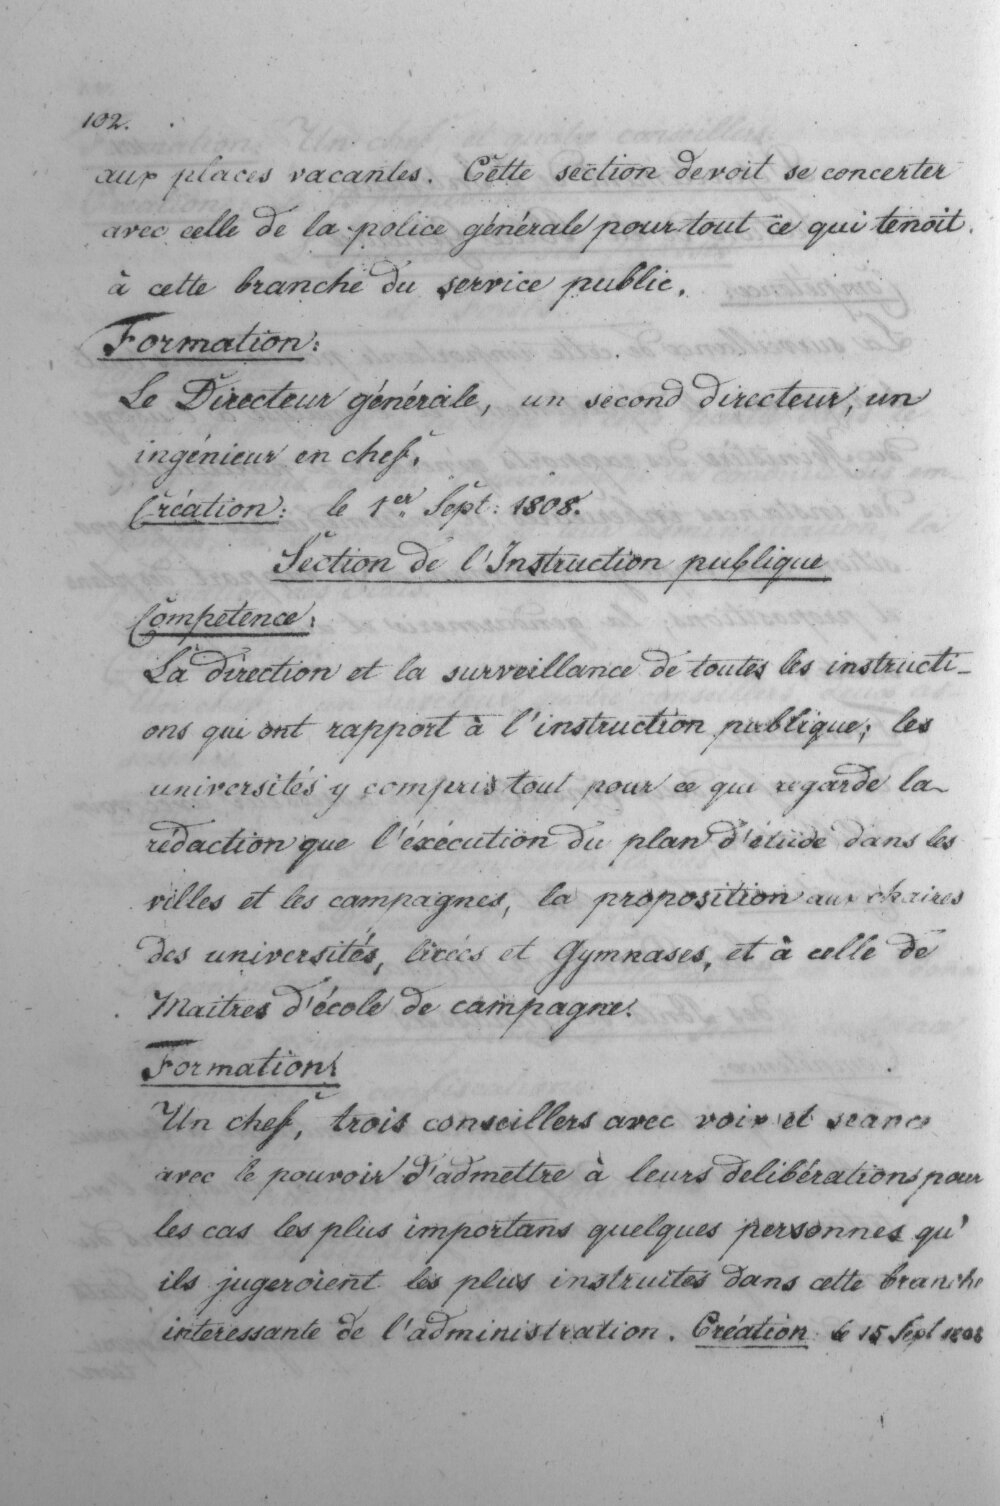 102.
aux places vacantes. Cette section devoit se concerter
avec celle de la police générale pour tout ce qui tenoit
à cette branche du service public.
Formation:
Le Directeur générale, un second directeur, un
ingénieur en chef.
Création: le 1er. Sept: 1808.
Section de l'Instruction publique
Compétence:
La direction et la surveillance de toutes les instructi-
ons qui ont rapport à l'instruction publique; les
universités y compris tout pour ce qui regarde la
rédaction que l'éxécution du plan d'étude dans les
villes et les campagnes, la proposition aux chaires
des universités, licées et Gymnases, et à celle de
Maitres d'école de campagne.
Formation:
Un chef, trois conseillers avec voix et seance
avec le pouvoir d'admettre à leurs delibérations pour
les cas les plus importans quelques personnes qu'
ils jugeroient les plus instruites dans cette branche
interessante de l'administration. Création le 15 Sept 1808